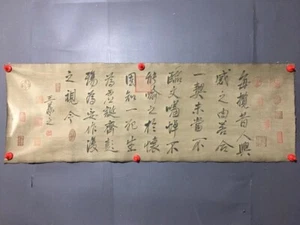 每攬昔人興
感之由若合
一契未嘗不
臨文嗟悼不
能喻之於懷
固知一死生
為虛誕齊彭
殤為妄作後
之視今